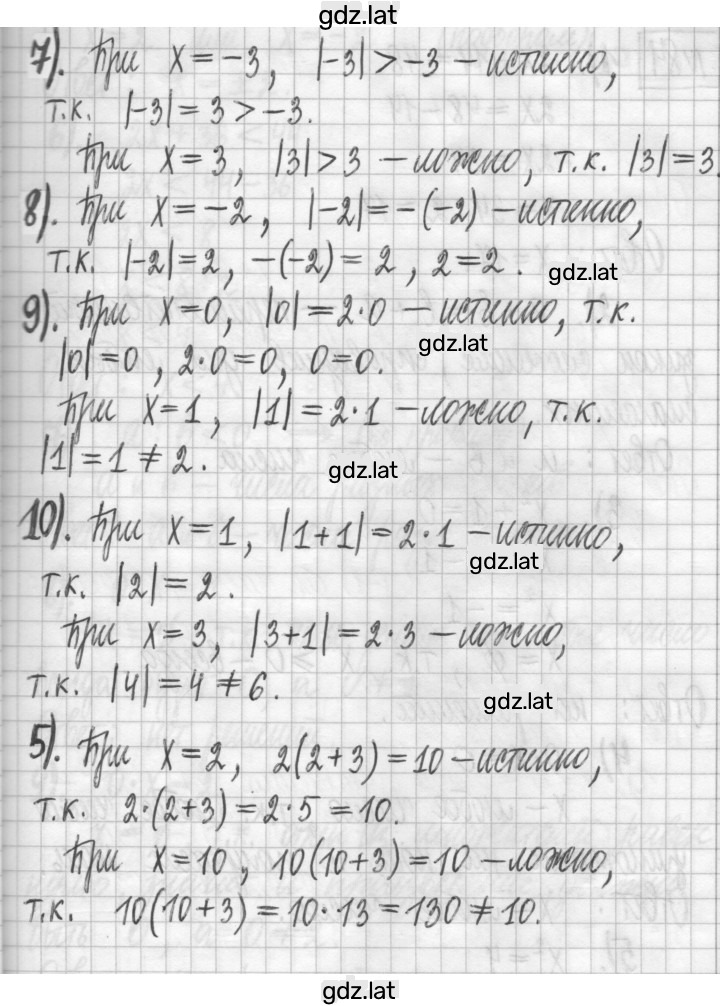 gdz.lat
7). При x = -3, |-3| > -3 – истинно,
т.к. |-3| = 3 > -3.
При x = 3, |3| > 3 – ложно, т.к. |3| = 3.
8). При x = -2, |-2| = -(-2) – истинно,
т.к. |-2| = 2, -(-2) = 2, 2 = 2.
gdz.lat
9). При x = 0, |0| = 2·0 – истинно, т.к.
gdz.lat
|0| = 0, 2·0 = 0, 0 = 0.
При x = 1, |1| = 2·1 – ложно, т.к.
|1| = 1 ≠ 2.
gdz.lat
10). При x = 1, |1+1| = 2·1 – истинно,
gdz.lat
т.к. |2| = 2.
При x = 3, |3+1| = 2·3 – ложно,
т.к. |4| = 4 ≠ 6.
gdz.lat
5). При x = 2, 2(2+3) = 10 – истинно,
т.к. 2·(2+3) = 2·5 = 10.
При x = 10, 10(10+3) = 10 – ложно,
т.к. 10(10+3) = 10·13 = 130 ≠ 10.
gdz.lat